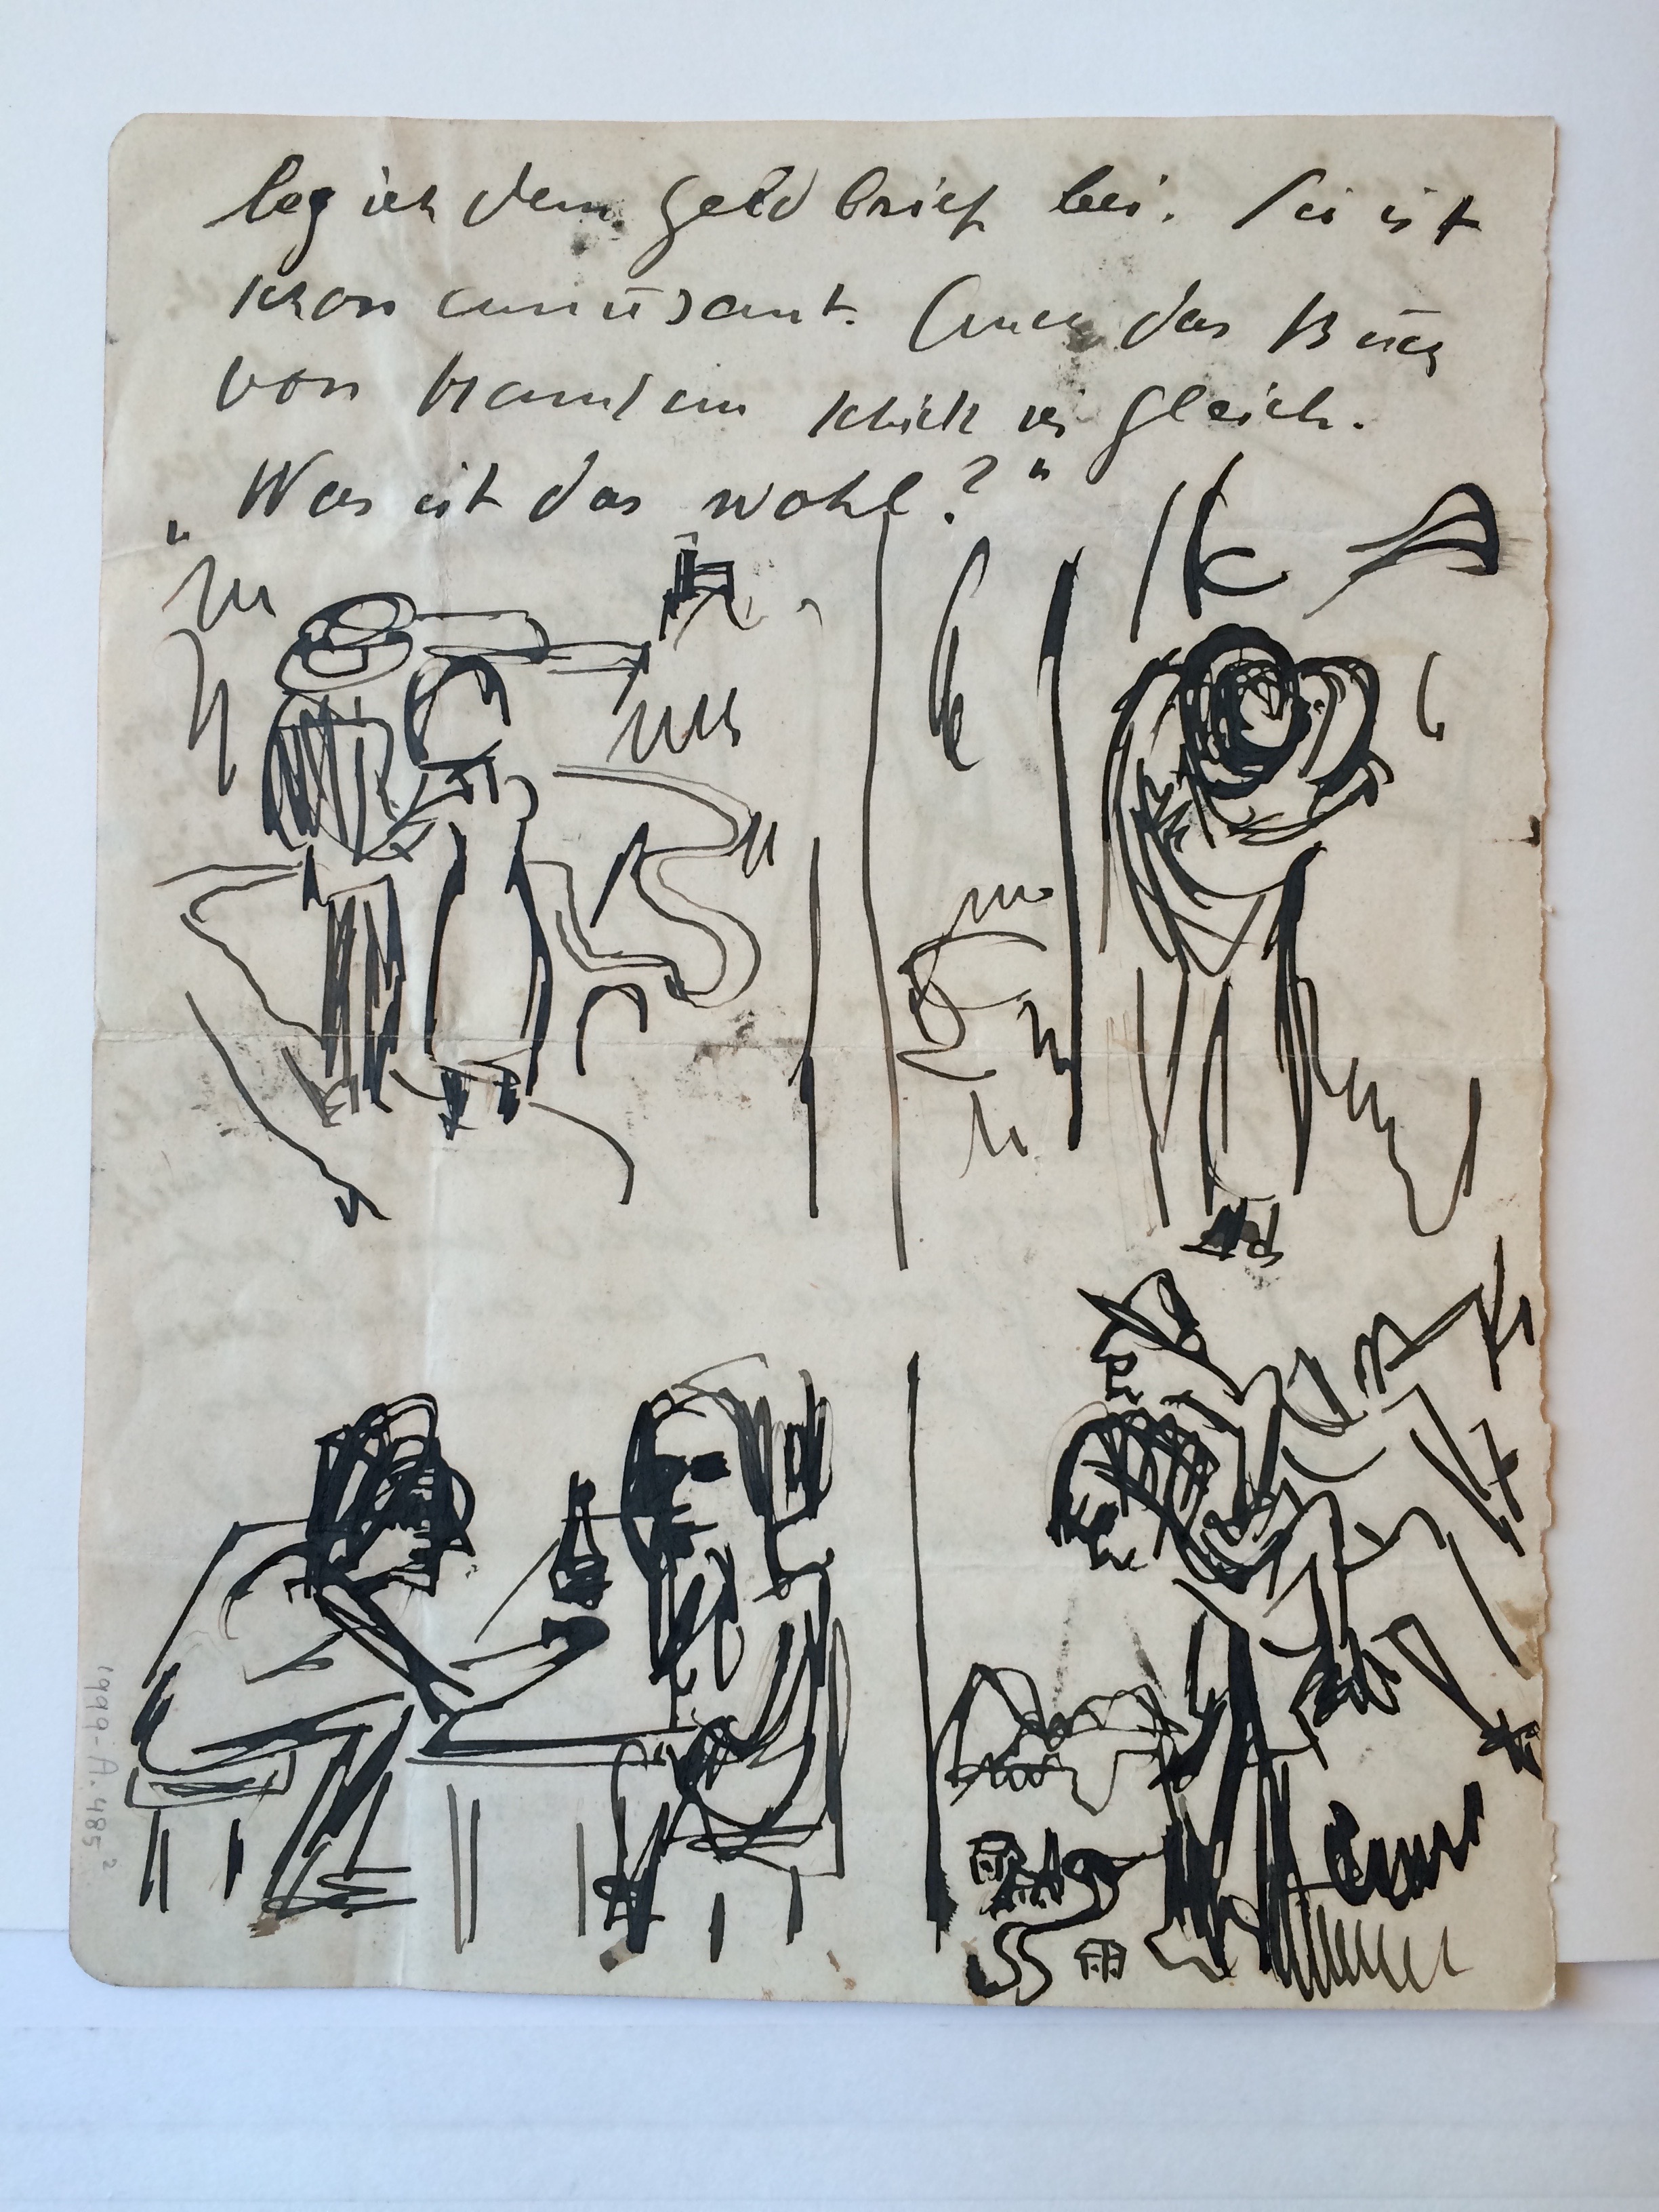 leg ich dem Geldbrief bei. Sie ist
schon amüsant. Auch das Buch
von Hamsun schick ich gleich.
„Was ist das wohl?"
1999-A.485²